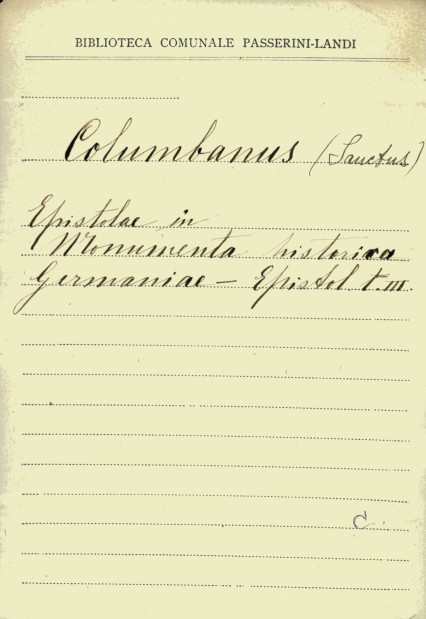 BIBLIOTECA COMUNALE PASSERINI-LANDI
Columbanus (Sanctus)
Epistolae in
Monumenta historica
Germaniae – Epistol t. III.
C.